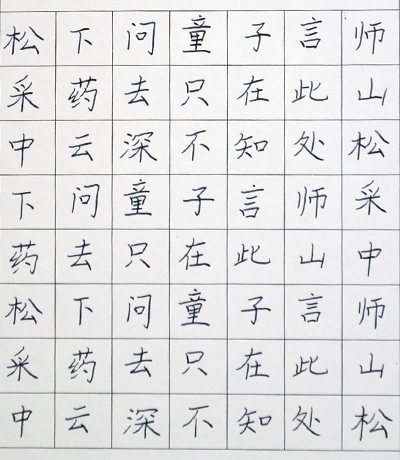 松下问童子言师
采药去只在此山
中云深不知处松
下问童子言师采
药去只在此山中
松下问童子言师
采药去只在此山
中云深不知处松